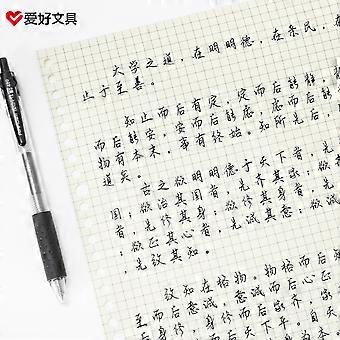 爱好文具
大学之道，在明明德，在亲民，在
止于至善。
知止而后有定，定而后能静，
而后能安，安而后能虑，虑而后能
物有本末，事有终始。知所先后，
道矣。
古之欲明明德于天下者，先
国；欲治其国者，先齐其家；
者，先修其身；欲修其身者，先
；欲正其心者，先诚其意；欲
，先致其知。
致知在格物。物格而后
至而后意诚，意诚而后心正
身修，身修而后家齐，家
而后天下平。自天
身为本。